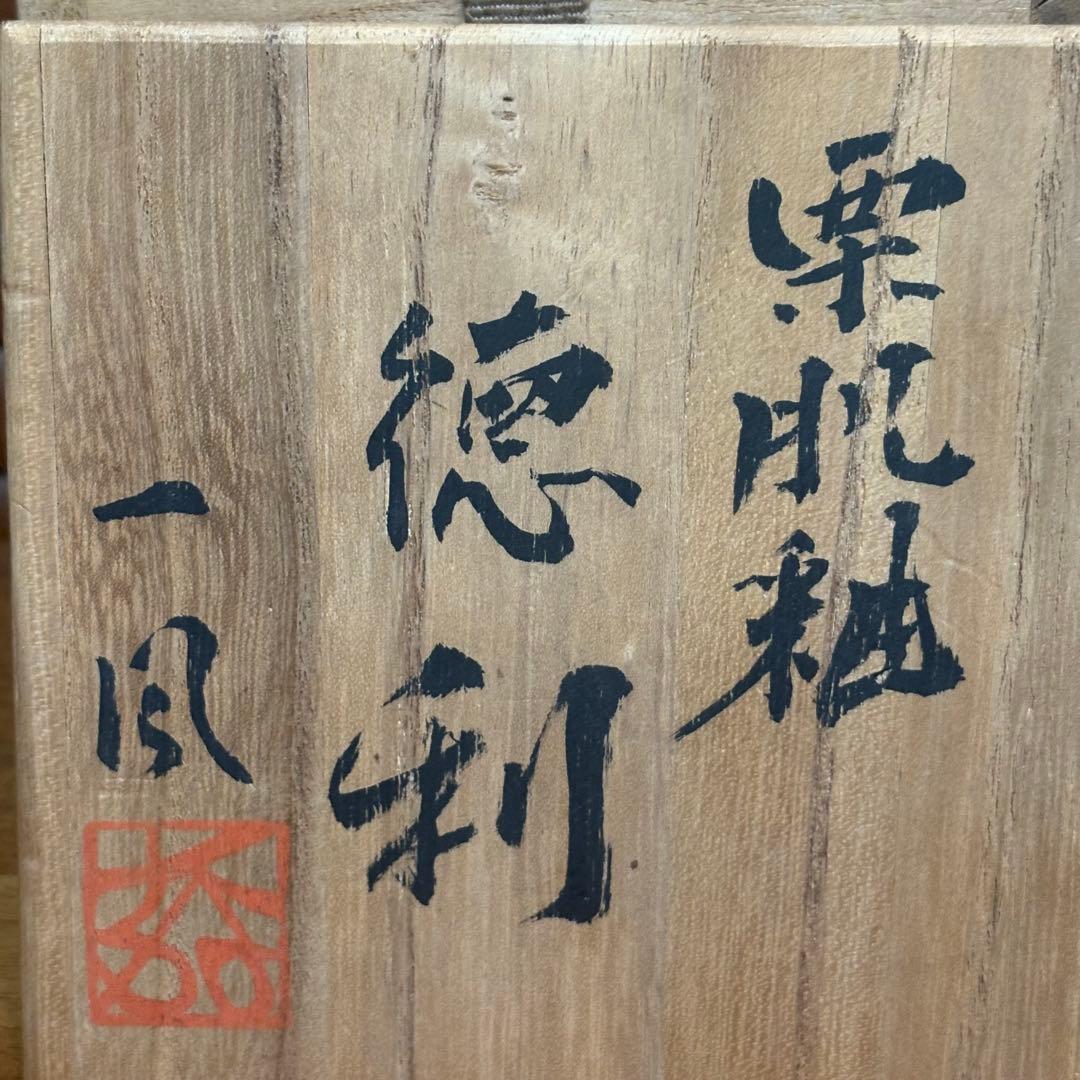 栗肌釉
徳利
一風